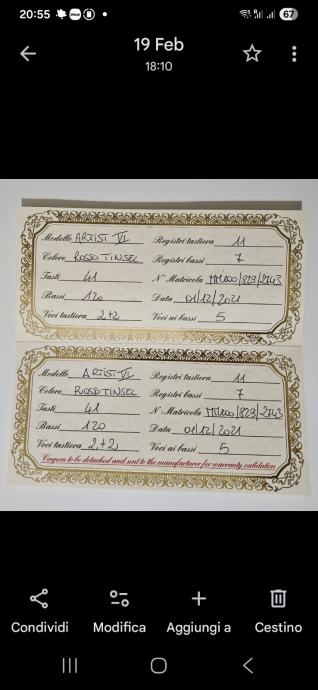 20:55
67
19 Feb
18:10
Modello ARTIST VI Registri tastiera 11
Colore ROSSO TINSEL Registri bassi 7
Tasti 41 N° Matricola
Bassi 120 Data 01/12/2021
Voci tastiera 2+2 Voci ai bassi 5
Modello ARTIST VI Registri tastiera 11
Colore ROSSO TINSEL Registri bassi 7
Tasti 41 N° Matricola
Bassi 120 Data 01/12/2021
Voci tastiera 2+2 Voci ai bassi 5
Coupon to be detached and sent to the manufacturer for warranty validation
Condividi Modifica Aggiungi a Cestino